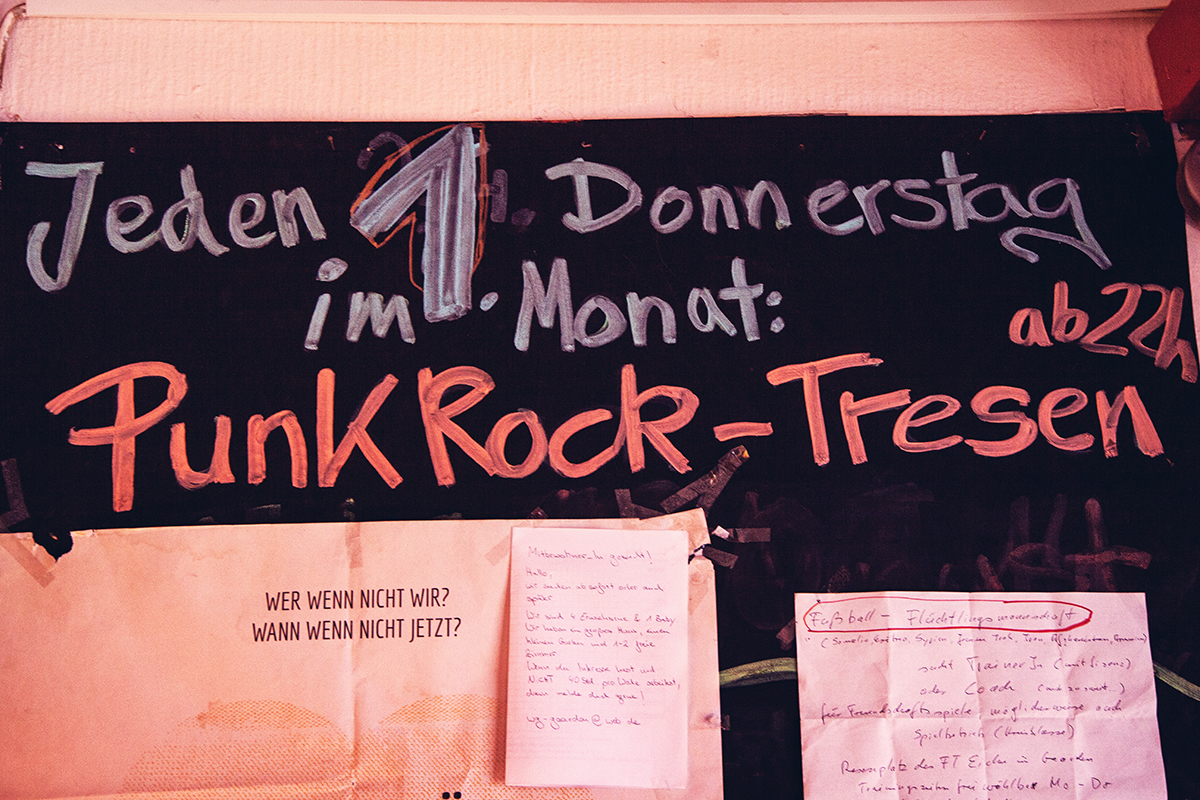 Jeden 1. Donnerstag
im. Monat:
ab 22h
PunkRock-Tresen
WER WENN NICHT WIR?
WANN WENN NICHT JETZT?
Mitbewohner_In gesucht!
Hallo,
wir suchen ab sofort oder auch
später
Wir sind 4 Erwachsene & 1 Baby
Wir haben ein großes Haus, einen
kleinen Garten und 1-2 freie
Zimmer
Wenn du Interesse hast und
NICHT 40 Std. pro Woche arbeitest,
dann melde dich gerne!
wg-gaarden@web.de
Fußball - Flüchtlingsmannschaft
(Somalia, Eritrea, Syrien, Jemen, Irak, Iran, Afghanistan,
sucht TrainerIn (mit Lizenz)
oder Coach
für Freundschaftsspiele möglicherweise auch
Spielbetrieb (Kreisklasse)
Rasenplatz des FT Eiche in Gaarden
Trainingszeiten frei wählbar Mo - Do